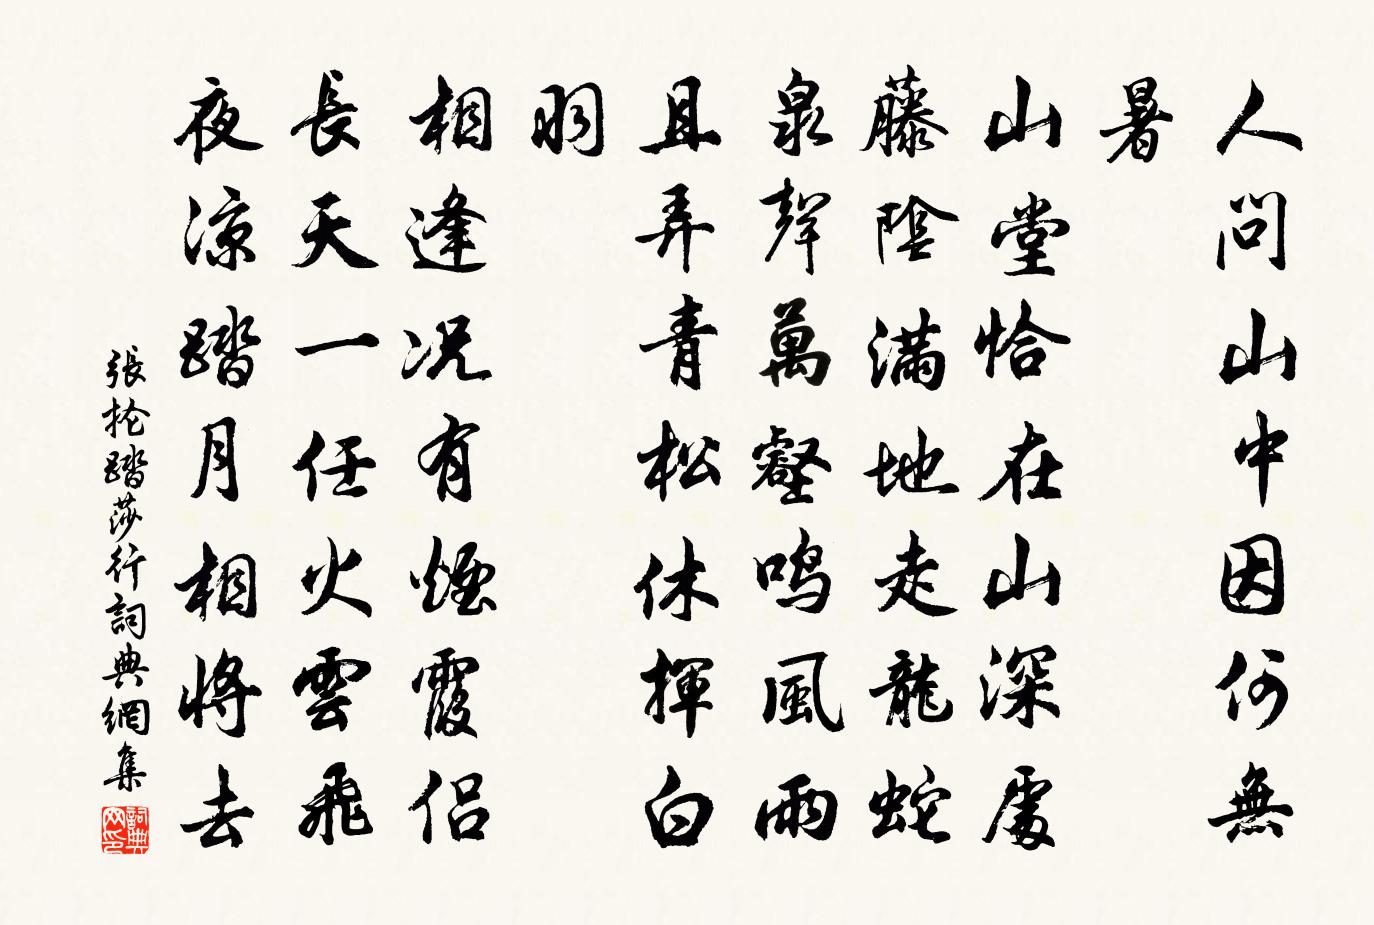 人問山中因何無
暑
山堂恰在山深處
藤陰滿地走龍蛇
泉聲萬壑鳴風雨
且弄青松休揮白
羽
相逢況有煙霞侶
長天一任火雲飛
夜涼踏月相將去
張掄踏莎行詞典網集
詞典网印